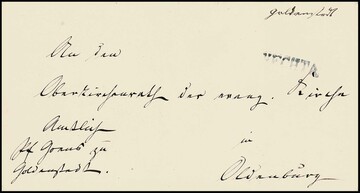 Goldenstedt
VECHTA
An den
Oberkirchenrath der evang. Kirche
Amtlich
in
Pf Goens zu
Goldenstedt.
Oldenburg